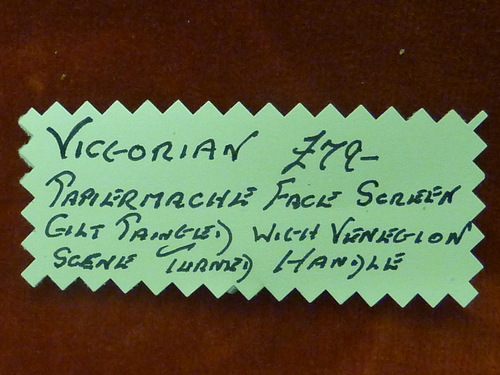 VICTORIAN £79-
PAPIERMACHE FACE SCREEN
GILT PAINTED WITH VENETION
SCENE TURNED HANDLE